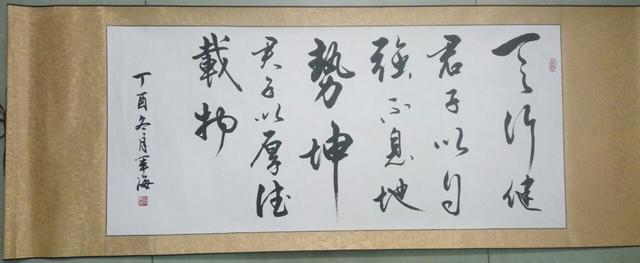 天行健
君子以自
强不息地
势坤
君子以厚德
载物
丁酉冬月军海